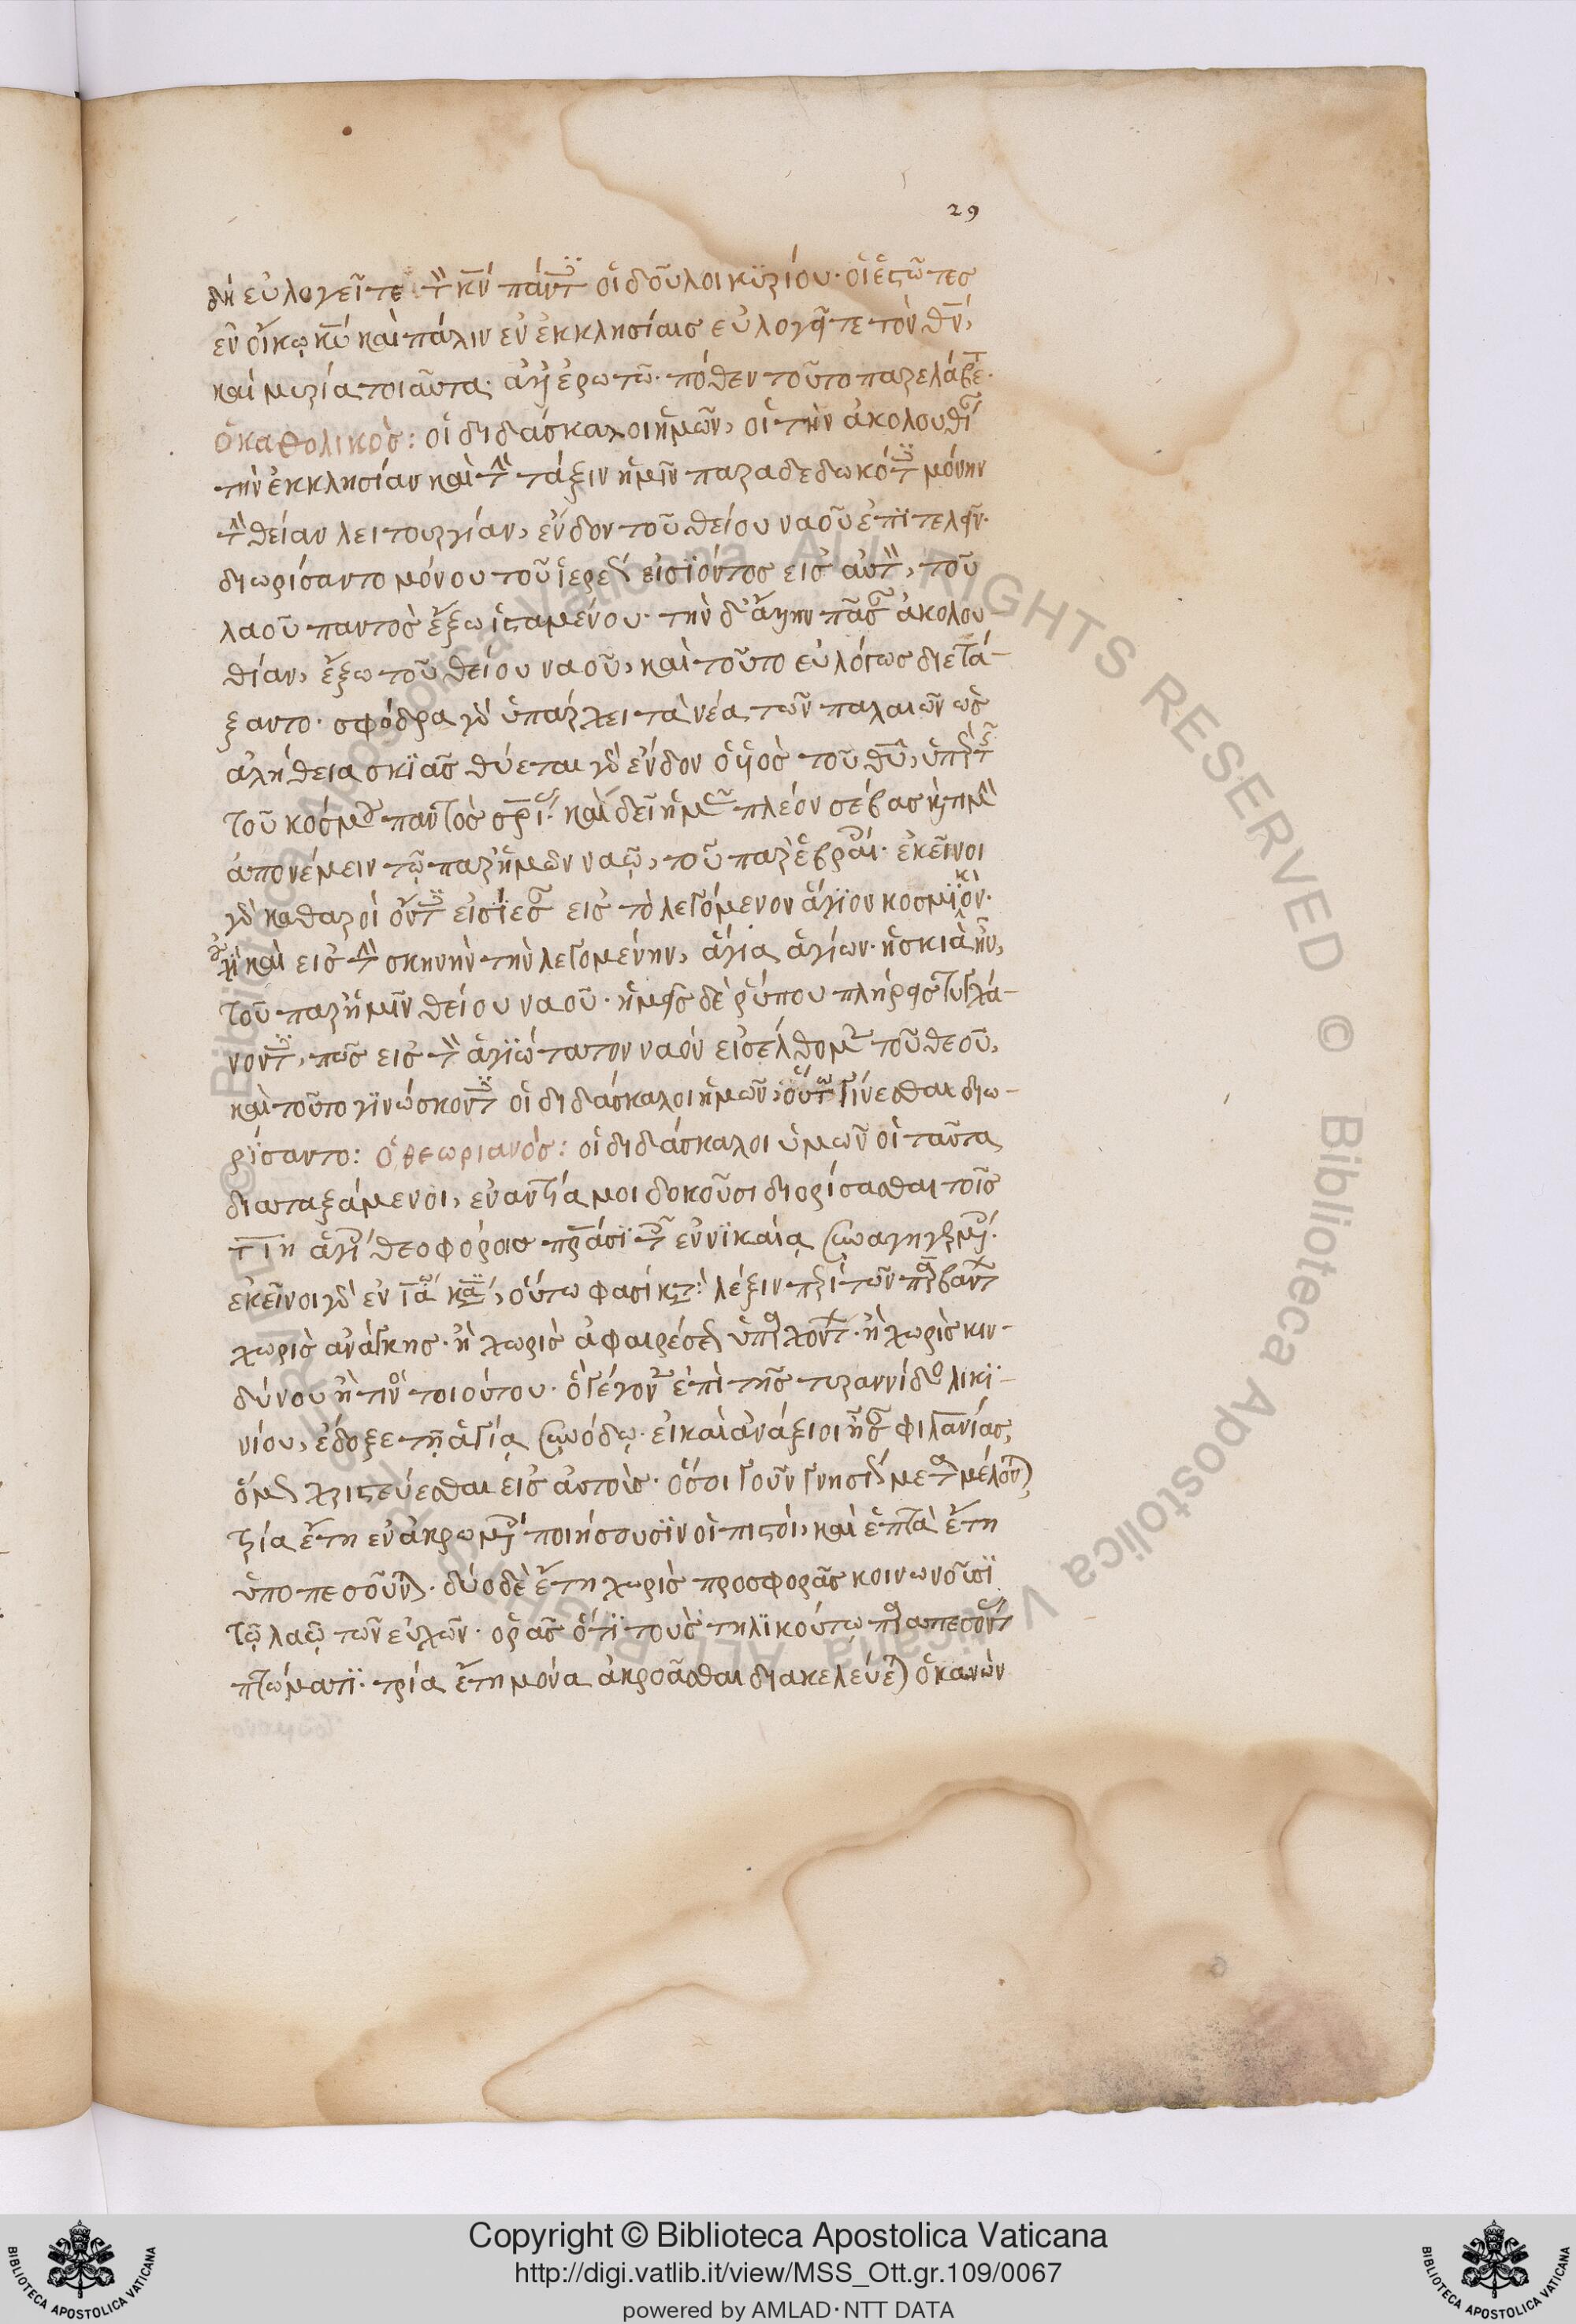 29
δὴ εὐλογεῖτε τὸν κ̅ν̅ πάντες οἱ δοῦλοι κυρίου· οἱ ἑστῶτες
ἐν οἴκῳ κ̅υ̅ καὶ πάλιν ἐν ἐκκλησίαις εὐλογεῖτε τὸν θ̅ν̅,
καὶ μυρία τοιαῦτα· ἀλλ' ἐρωτῶ· πόθεν τοῦτο παρέλαβε·
ὁ καθολικὸς: οἱ διδάσκαλοι ἡμῶν, οἱ τὴν ἀκολουθίαν
τὴν ἐκκλησίαν καὶ τὴν τάξιν ἡμῖν παραδεδωκότες μόνην
τὴν θείαν λειτουργίαν, ἔνδον τοῦ θείου ναοῦ ἐπιτελεῖν·
διωρίσαντο μόνου τοῦ ἱερέως εἰσϊόντος εἰς αὐτὸν, τοῦ
λαοῦ παντὸς ἔξω ἱσταμένου· τὴν δ' ἄλλην πᾶσαν ἀκολου
θίαν, ἔξω τοῦ θείου ναοῦ, καὶ τοῦτο εὐλόγως διετά-
ξαντο· σφόδρα γὰρ ὑπάρχει τὰ νέα τῶν παλαιῶν ὡς
ἀλήθεια σκϊᾶς θύεται γὰρ ἔνδον ὁ υἱὸς τοῦ θ̅υ̅, ὑπὲρ τῆς
τοῦ κόσμου παντὸς σ̅ρ̅ίας· καὶ δεῖ ἡμᾶς πλέον σέβας καὶ τιμὴν
ἀπονέμειν τῷ παρ' ἡμῶν ναῷ, τοῦ παρ' ἑβραίοις· ἐκεῖνοι
γὰρ καθαροὶ ὄντες εἰσΐεσαν εἰς τὸ λεγόμενον ἅγϊον κοσμϊκὸν·
καὶ εἰς τὴν σκηνὴν τὴν λεγομένην, ἅγια ἁγίων· ἡ σκιὰ ἦν,
τοῦ παρ' ἡμῖν θείου ναοῦ· ἡμεῖς δὲ ῥύπου πλήρεις τυγχά-
νοντες, πῶς εἰς τὸν ἁγϊώτατον ναὸν εἰσέλθομεν τοῦ θεοῦ,
καὶ τοῦτο γϊνώσκοντες οἱ διδάσκαλοι ἡμῶν, οὕτως γίνεσθαι διω-
ρίσαντο: ὁ θεωριανός: οἱ διδάσκαλοι ὑμῶν οἱ ταῦτα
διαταξάμενοι, ἐναντία μοι δοκοῦσι διορίσασθαι τοῖς
τ̅ι̅η̅ ἁγίοις θεοφόροις π̅ρ̅άσϊ τοῖς ἐν νϊκαίᾳ συναγηγερμένοις·
ἐκεῖνοι γὰρ ἐν ια κανόνι, οὕτω φασὶ κατὰ λέξιν περὶ τῶν παραβάντων
χωρὶς ἀνάγκης· ἢ χωρὶς ἀφαιρέσεως ὑπαρχόντων· ἢ χωρὶς κιν-
δύνου ἤ τινος τοιούτου· ὃ γέγονεν ἐπὶ τῆς τυραννίδος λικϊ-
νίου, ἔδοξε τῇ ἁγίᾳ συνόδῳ· εἰ καὶ ἀνάξιοι ἦσαν φιλανίας,
ὅμως χριστεύεσθαι εἰς αὐτοὺς· ὅσοι γοῦν γνησίως μεταμέλονται
τρία ἔτη ἐν ἀκροωμένοις ποιήσουσϊν οἱ πιστοὶ, καὶ ἑπτὰ ἔτη
ὑποπεσοῦνται· δύο δὲ ἔτη χωρὶς προσφορᾶς κοινωνοῦσϊ
τῷ λαῷ τῶν εὐχῶν· ὁρᾷς ὅτϊ τοὺς τηλϊκούτῳ παραπεσόντας
πτώματϊ· τρία ἔτη μόνα ἀκροᾶσθαι διακελεύεται ὁ κανὼν
Copyright © Biblioteca Apostolica Vaticana
http://digi.vatlib.it/view/MSS_Ott.gr.109/0067
powered by AMLAD·NTT DATA